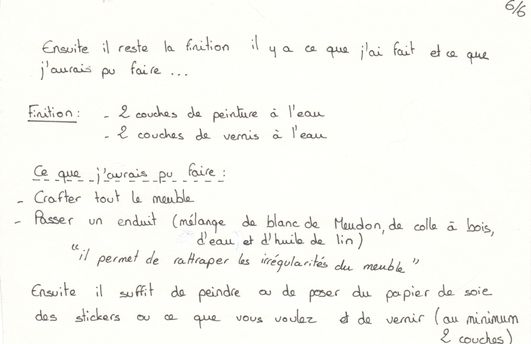 6/6
Ensuite il reste la finition il y a ce que j'ai fait et ce que
j'aurais pu faire ...
Finition : - 2 couches de peinture à l'eau
- 2 couches de vernis à l'eau
Ce que j'aurais pu faire :
- Crafter tout le meuble
- Passer un enduit (mélange de blanc de Meudon, de colle à bois,
d'eau et d'huile de lin)
"il permet de rattraper les irrégularités du meuble"
Ensuite il suffit de peindre ou de poser du papier de soie
des stickers ou ce que vous voulez et de vernir (au minimum
2 couches)